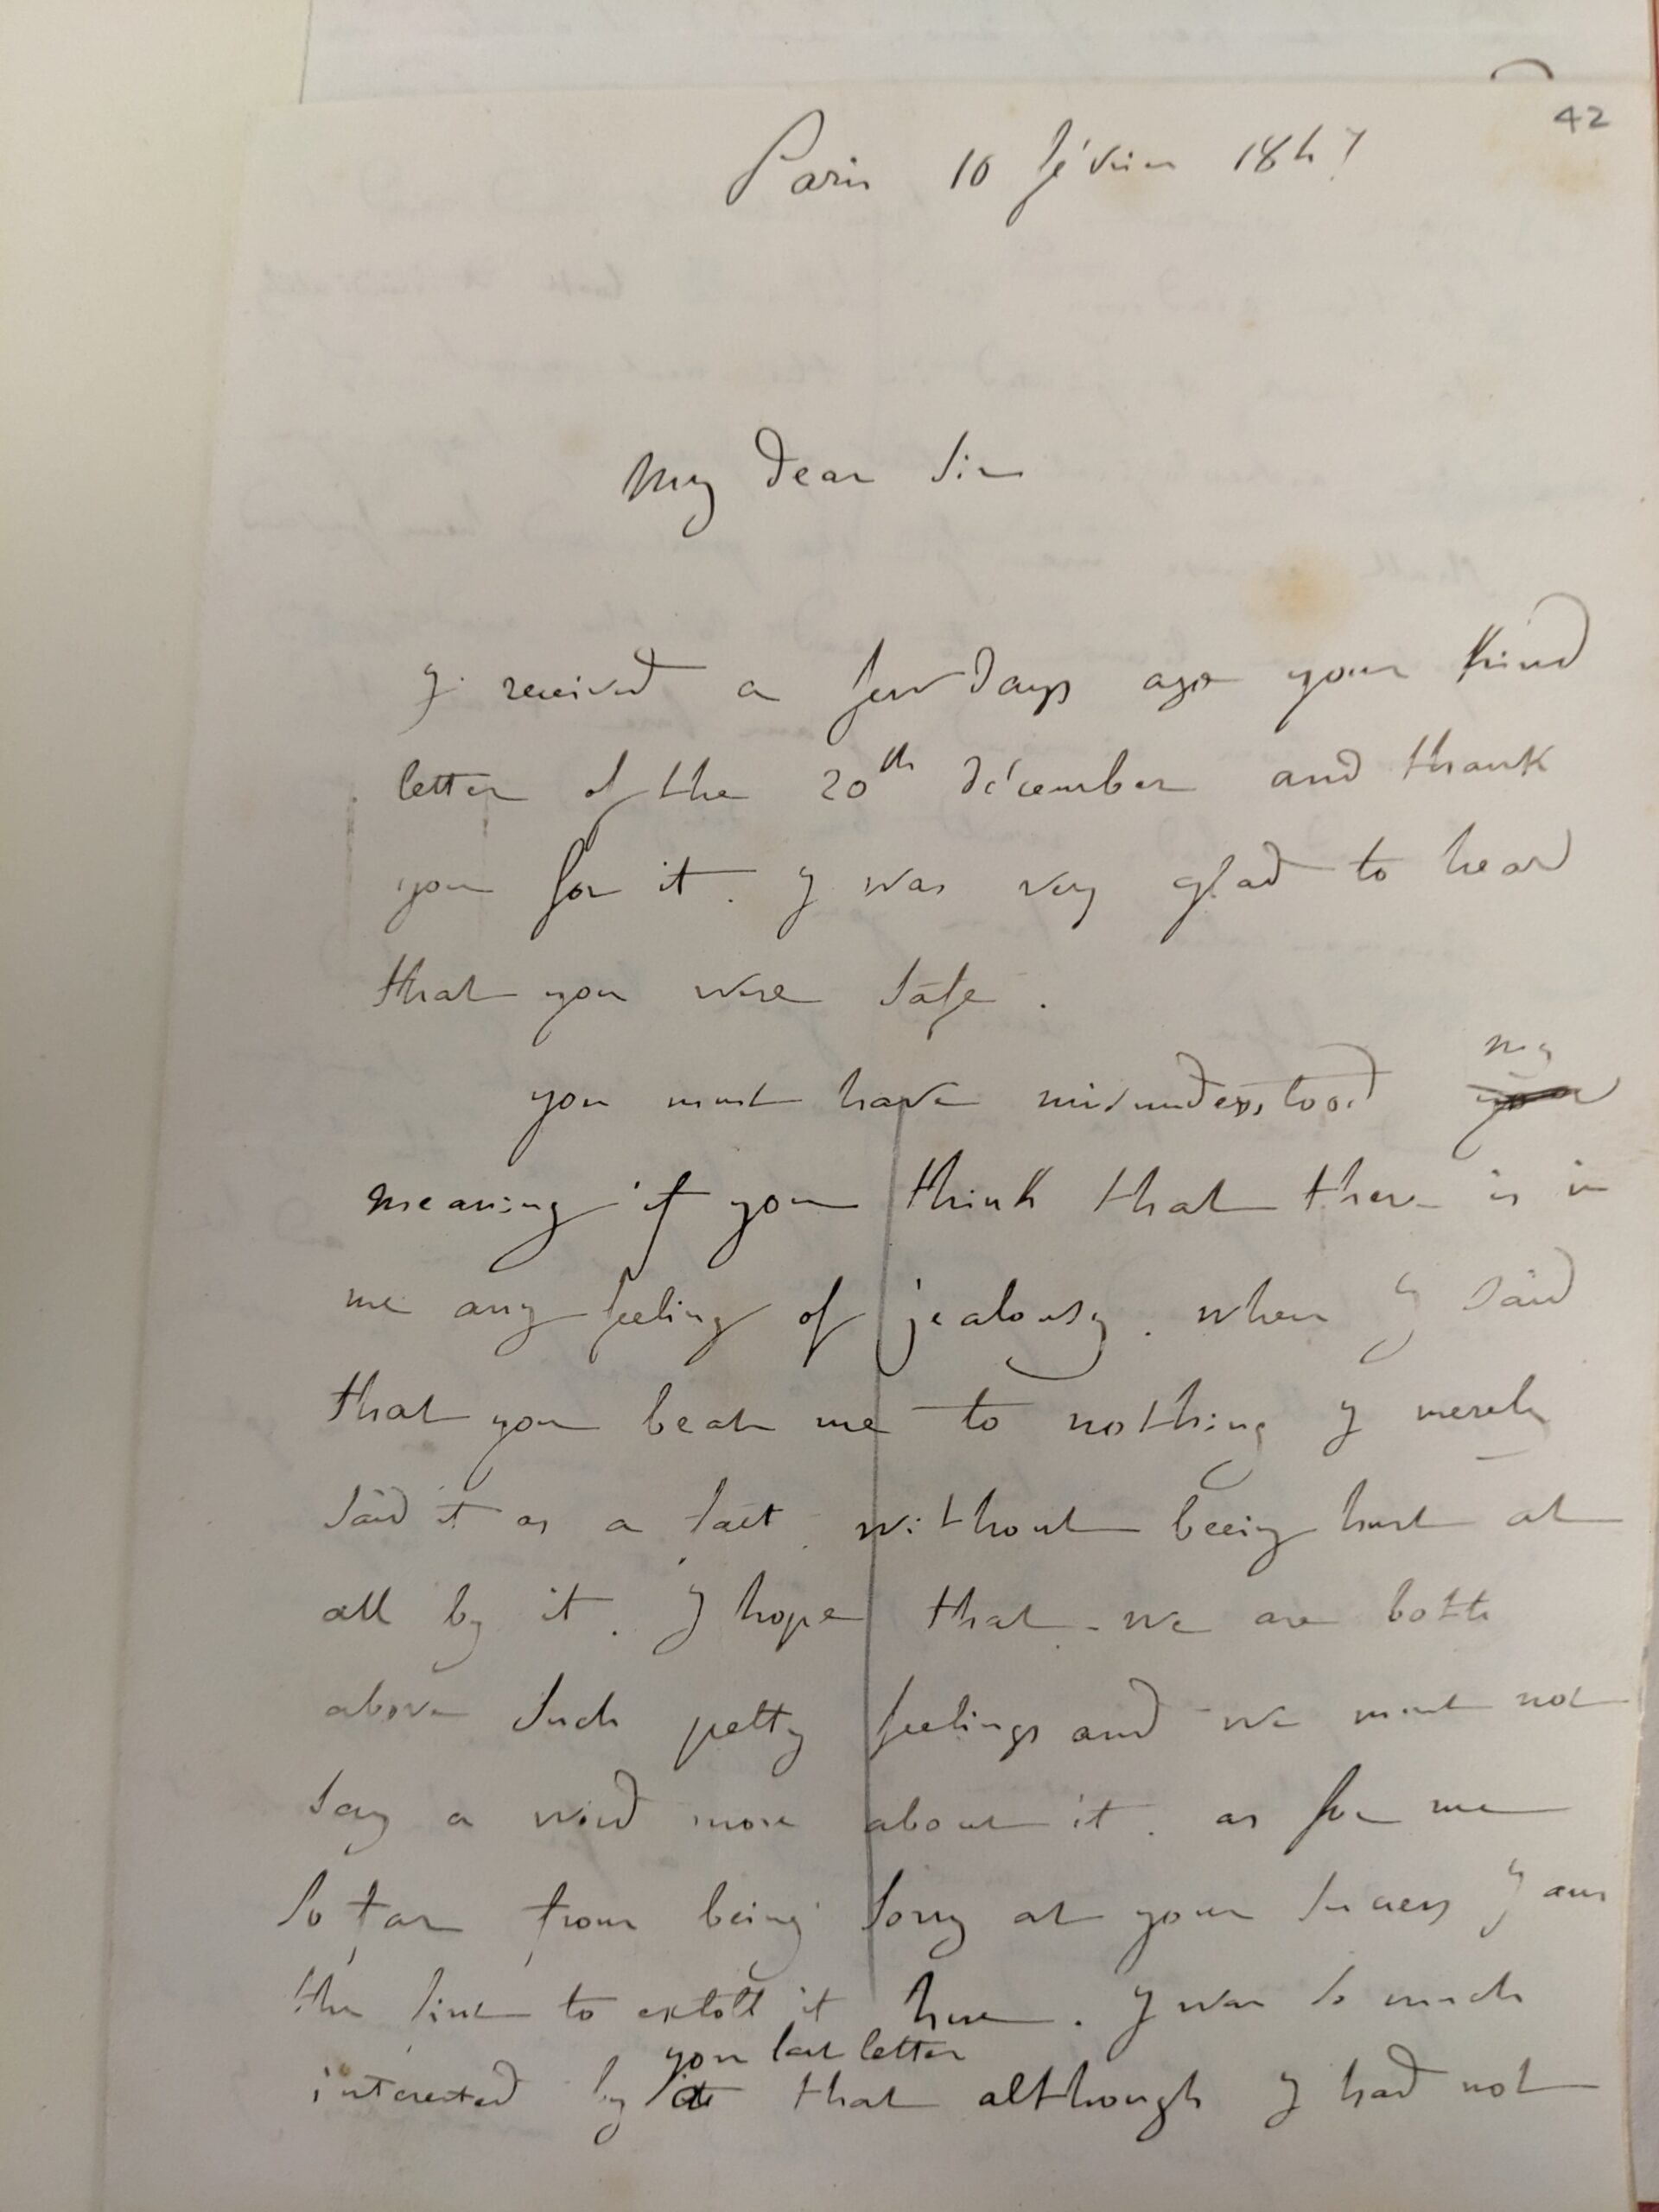 42
Paris 10 février 1847
My dear Sir
I received a few days ago your kind
letter of the 20th décember and thank
you for it. I was very glad to heard
that you were safe.
you must have misunderstood my
meaning if you think that there is in
me any feeling of jealousy. when I said
that you beat me to nothing I merely
said it as a fact without beeing hurt at
all by it. I hope that we are both
above such petty feelings and we must not
say a word more about it. as for me
so far from being sorry at your success I am
the first to extoll it here. I was so much
your last letter
interested by that although I had not